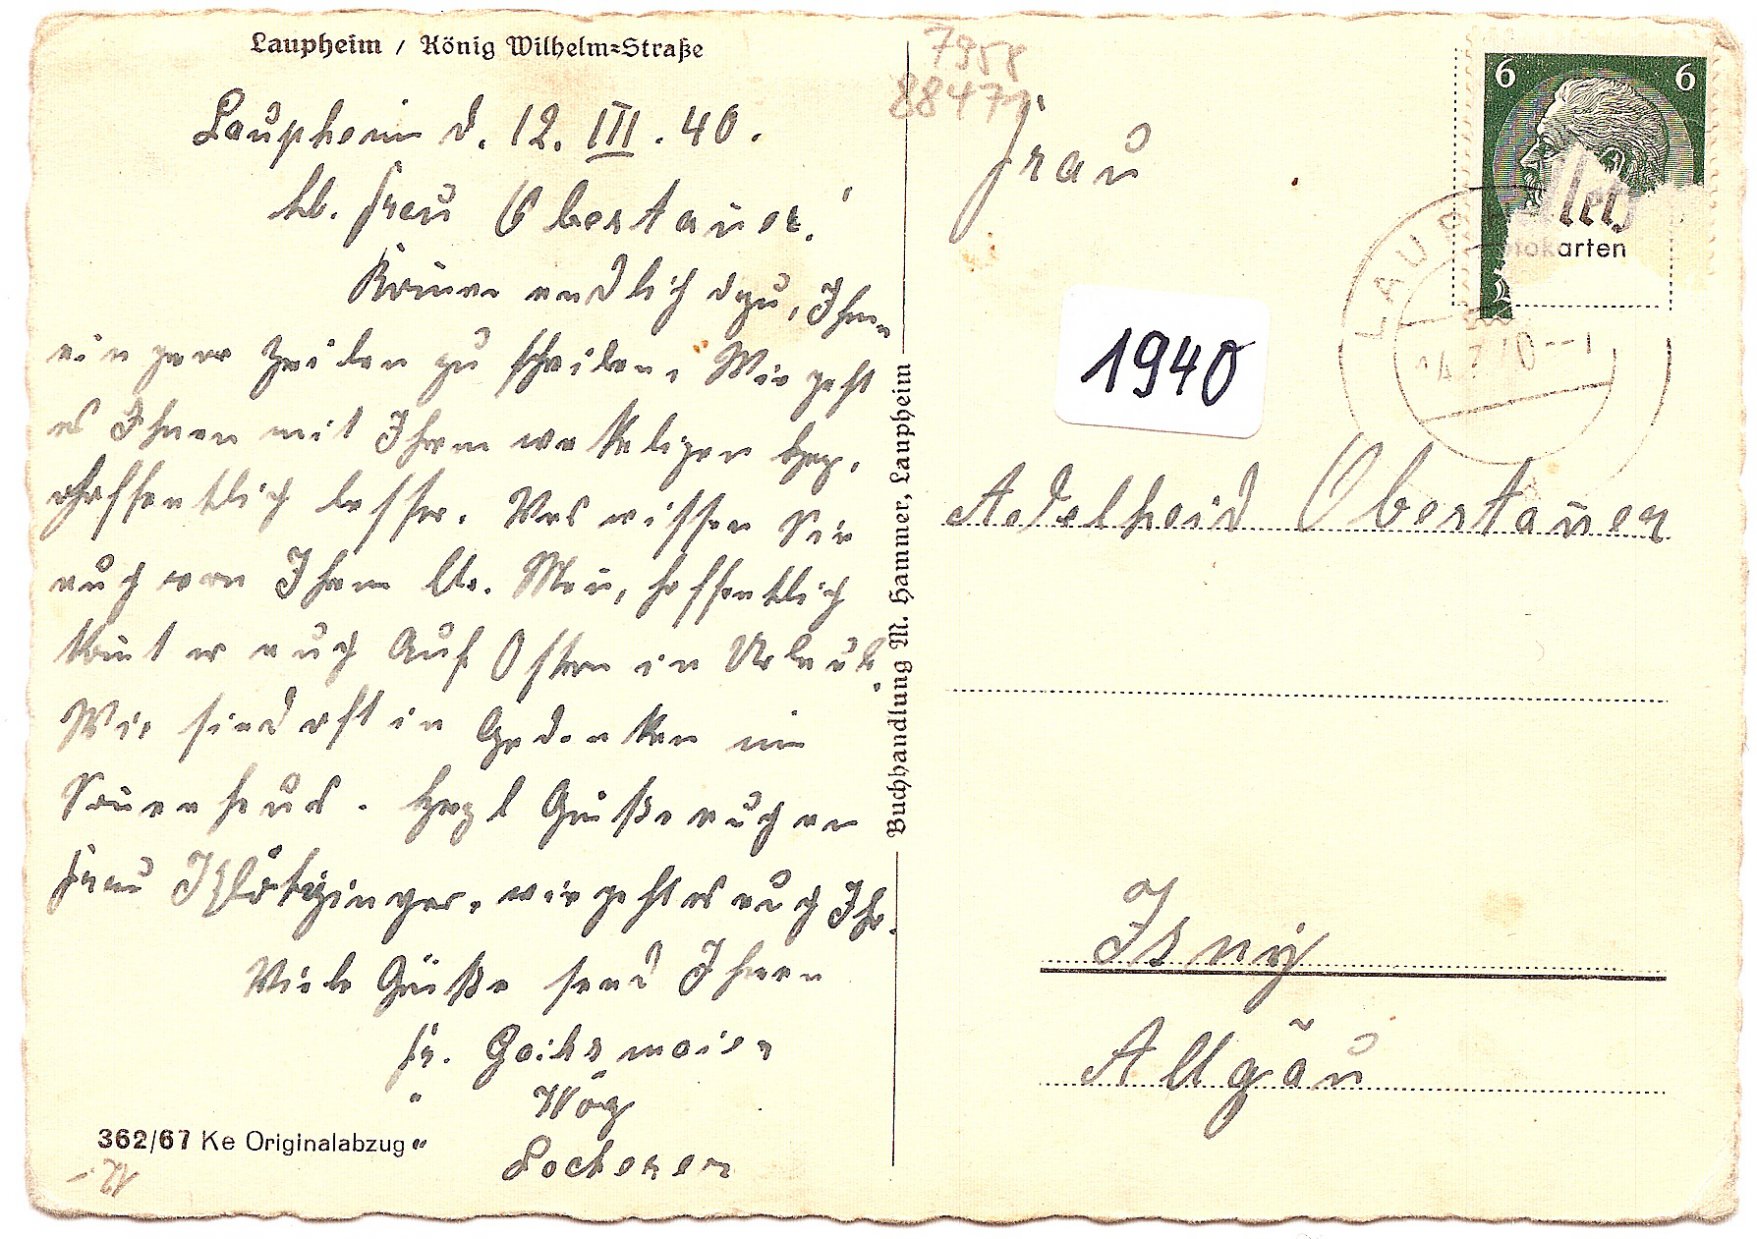 Laupheim / König Wilhelm-Straße
7958
8847
Laupheim d. 12. III. 40.
Lb. Frau Obertauer!
Komme endlich dzu, Ihnen
ein paar Zeilen zu schreiben. Wie geht
es Ihnen mit Ihrem Herz,
hoffentlich besser. Was wissen Sie
auch von Ihrem lb. Max, hoffentlich
komt er auch Auf Ostern in Urlaub.
Wir sind oft in Gedanken im
Sonnenhaus. Herzl Grüße auch an
Frau wie geht es auch Ihr.
Viele Grüße send Ihnen
Fr. Geihsmaier
" Wög
" Locherer
362/67 Ke Originalabzug
Buchhandlung M. Hammer, Laupheim
6 6
karten
LAUP
1940
Frau
Adelheid Obertauer
Isny
Allgäu